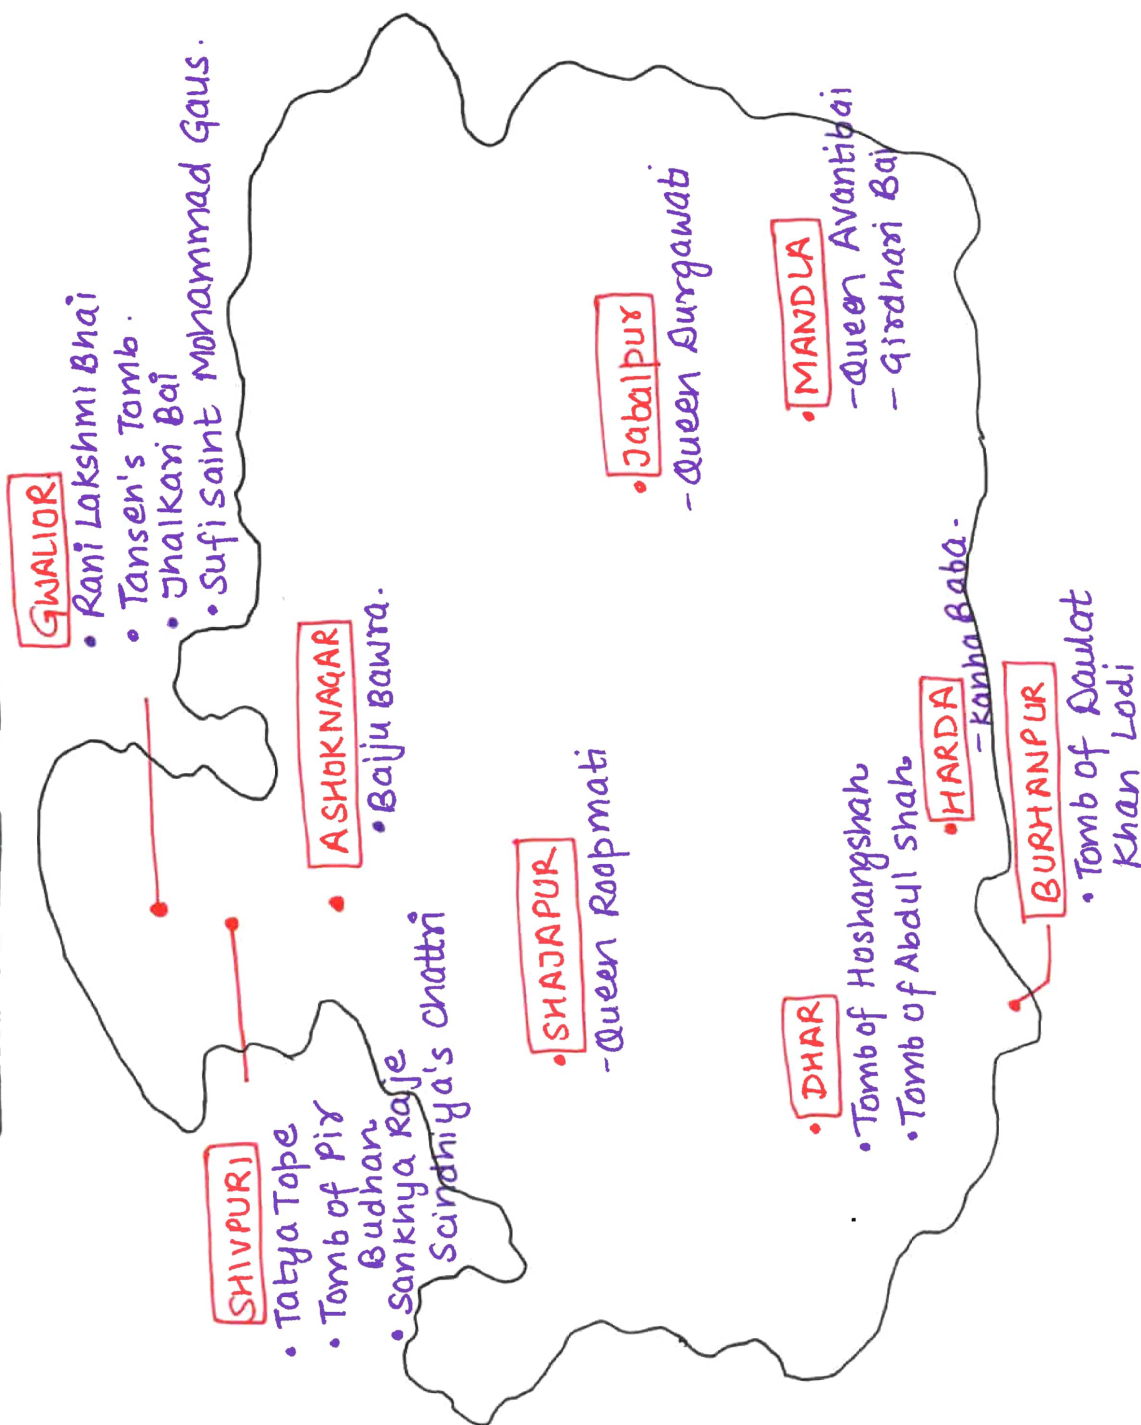 GWALIOR
• Rani Lakshmi Bhai
• Tansen's Tomb.
• Jhalkari Bai
• Sufi Saint Mohammad Gaus.
SHIVPURI
• Tatya Tope
• Tomb of Pir
Budhan
• Sankhya Raje
Scindhiya's chattri
• ASHOKNAGAR
• Baiju Bawra.
• SHAJAPUR
- Queen Roopmati
• Jabalpur
- Queen Durgawati
• MANDLA
- Queen Avantibai
- Girdhari Bai
• DHAR
• Tomb of Hoshangshah
• Tomb of Abdul Shah
• HARDA
- Kanha Baba.
BURHANPUR
• Tomb of Daulat
Khan Lodi